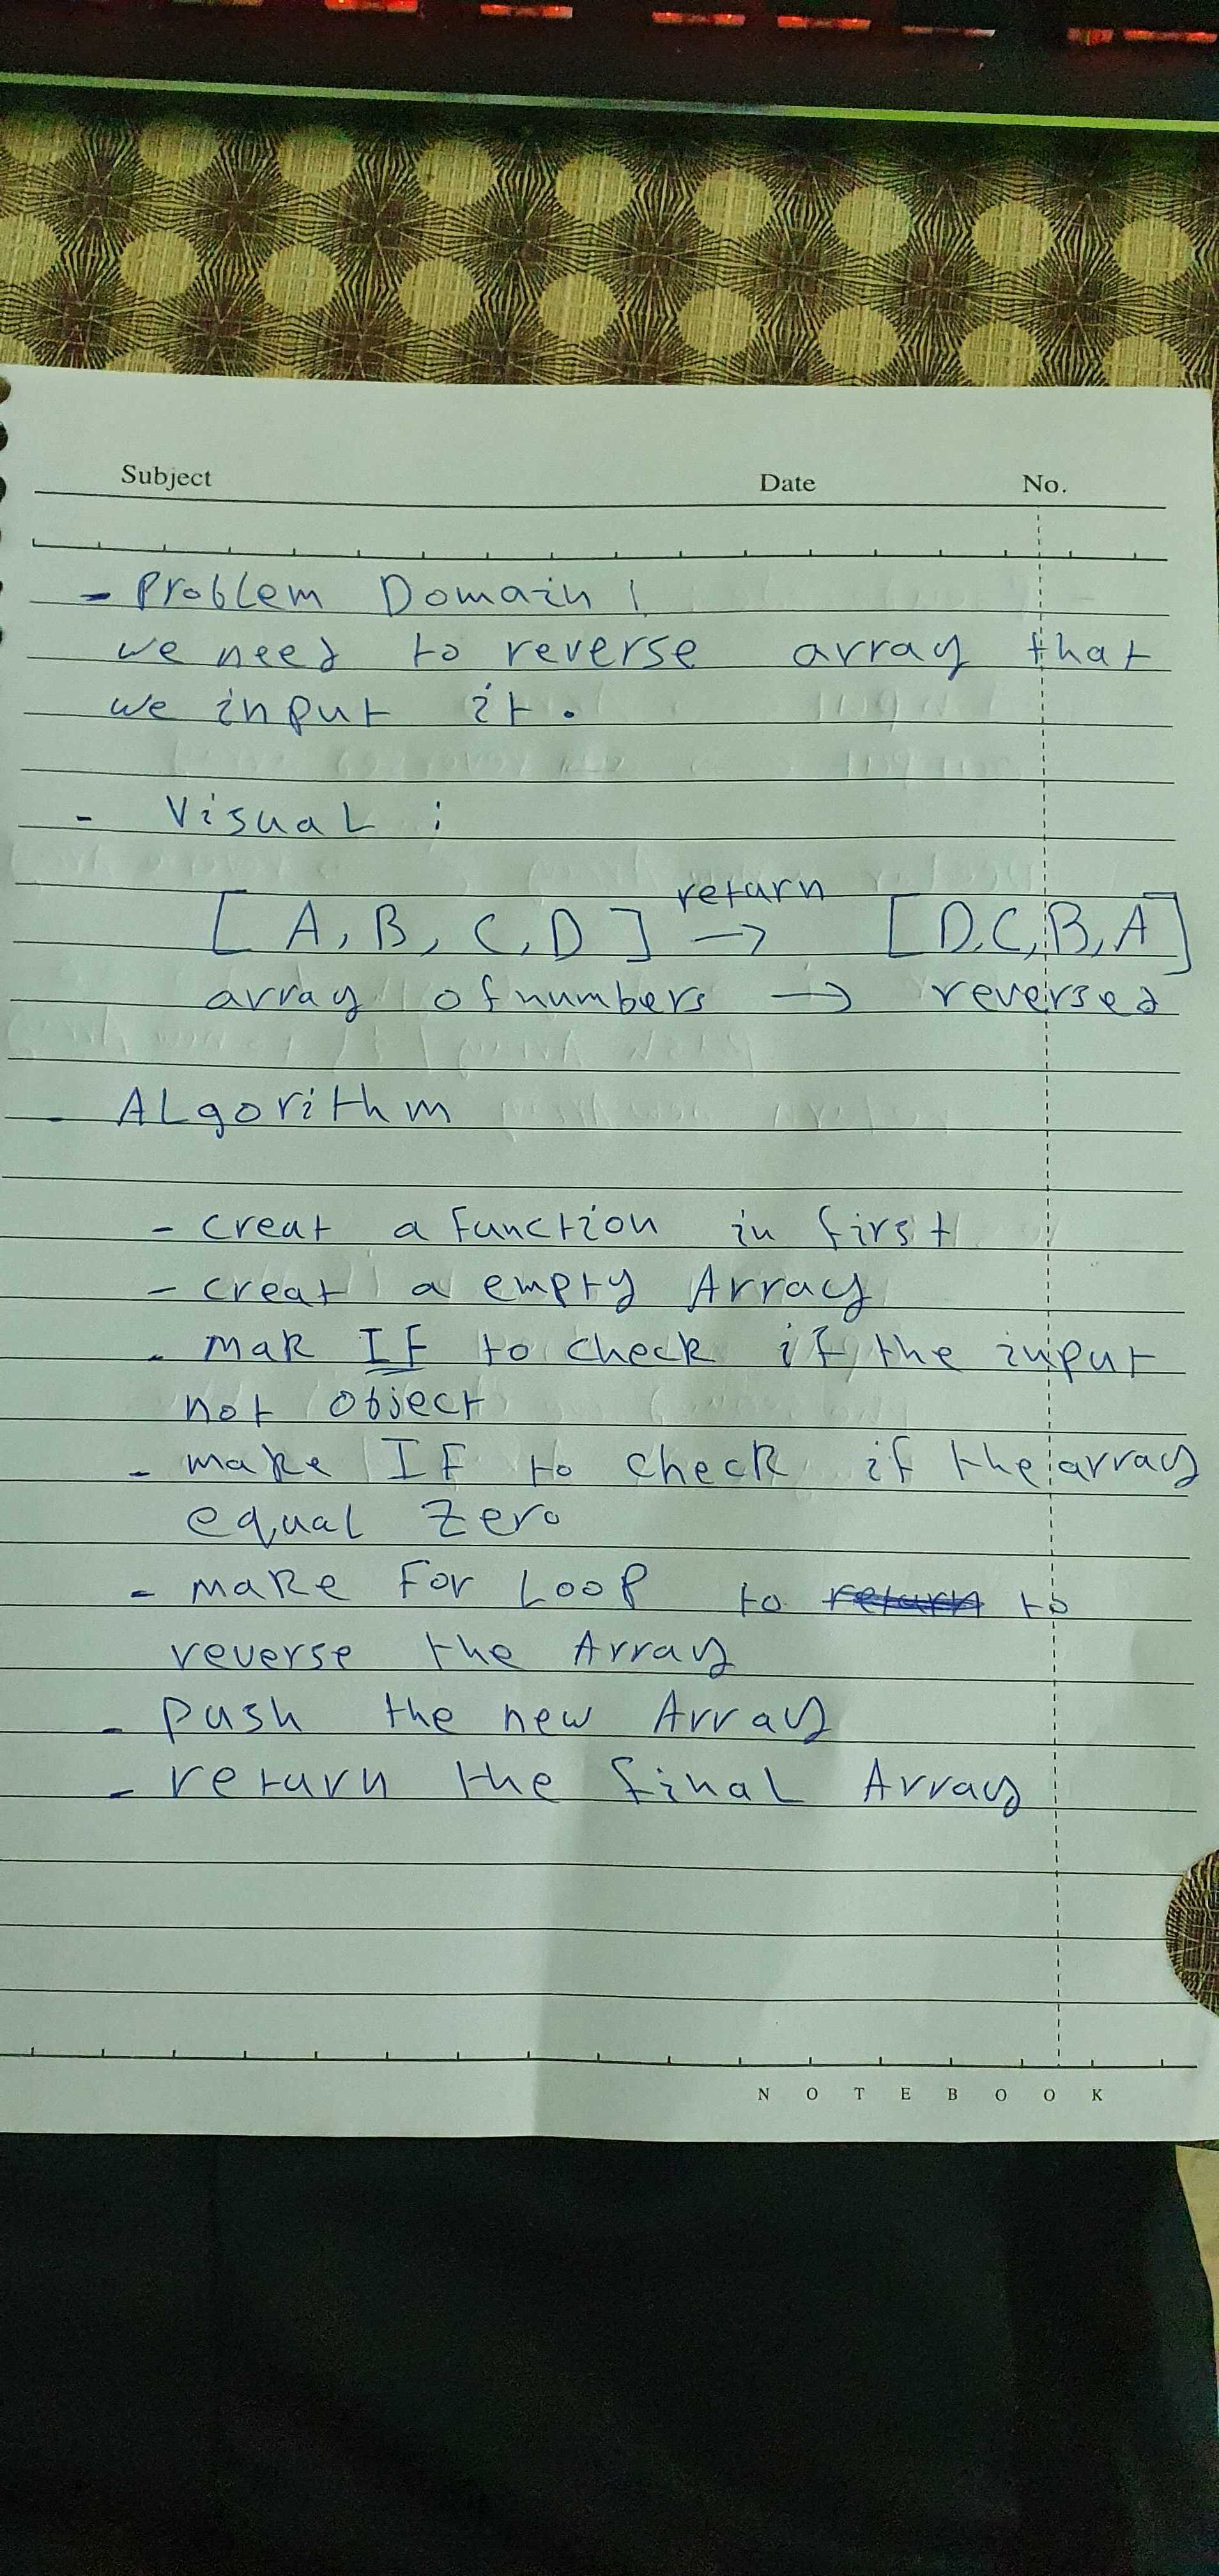 Subject Date No.
- Problem Domain !
we need to reverse array that
we input it .
- Visual :
return
[ A, B, C, D ] → [ D, C, B, A ]
array of numbers → reversed
- ALgorithm
- creat a function in first
- creat a empty Array
- mak IF to check if the input
not object
- make IF to check if the array
equal Zero
- make For Loop to return to
reverse the Array
- push the new Array
- return the final Array
NOTEBOOK